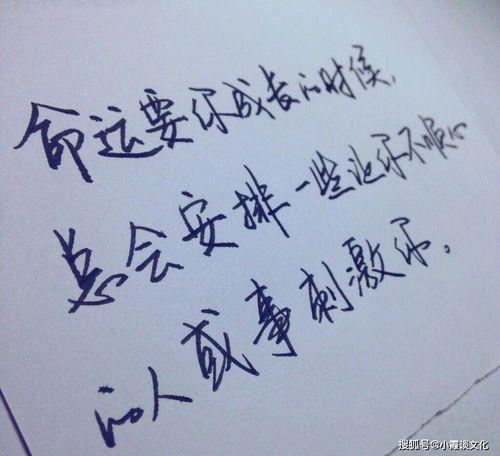 命运要你成长的时候，
总会安排一些让你不顺心
的人或事刺激你。
搜狐号@小霞谈文化